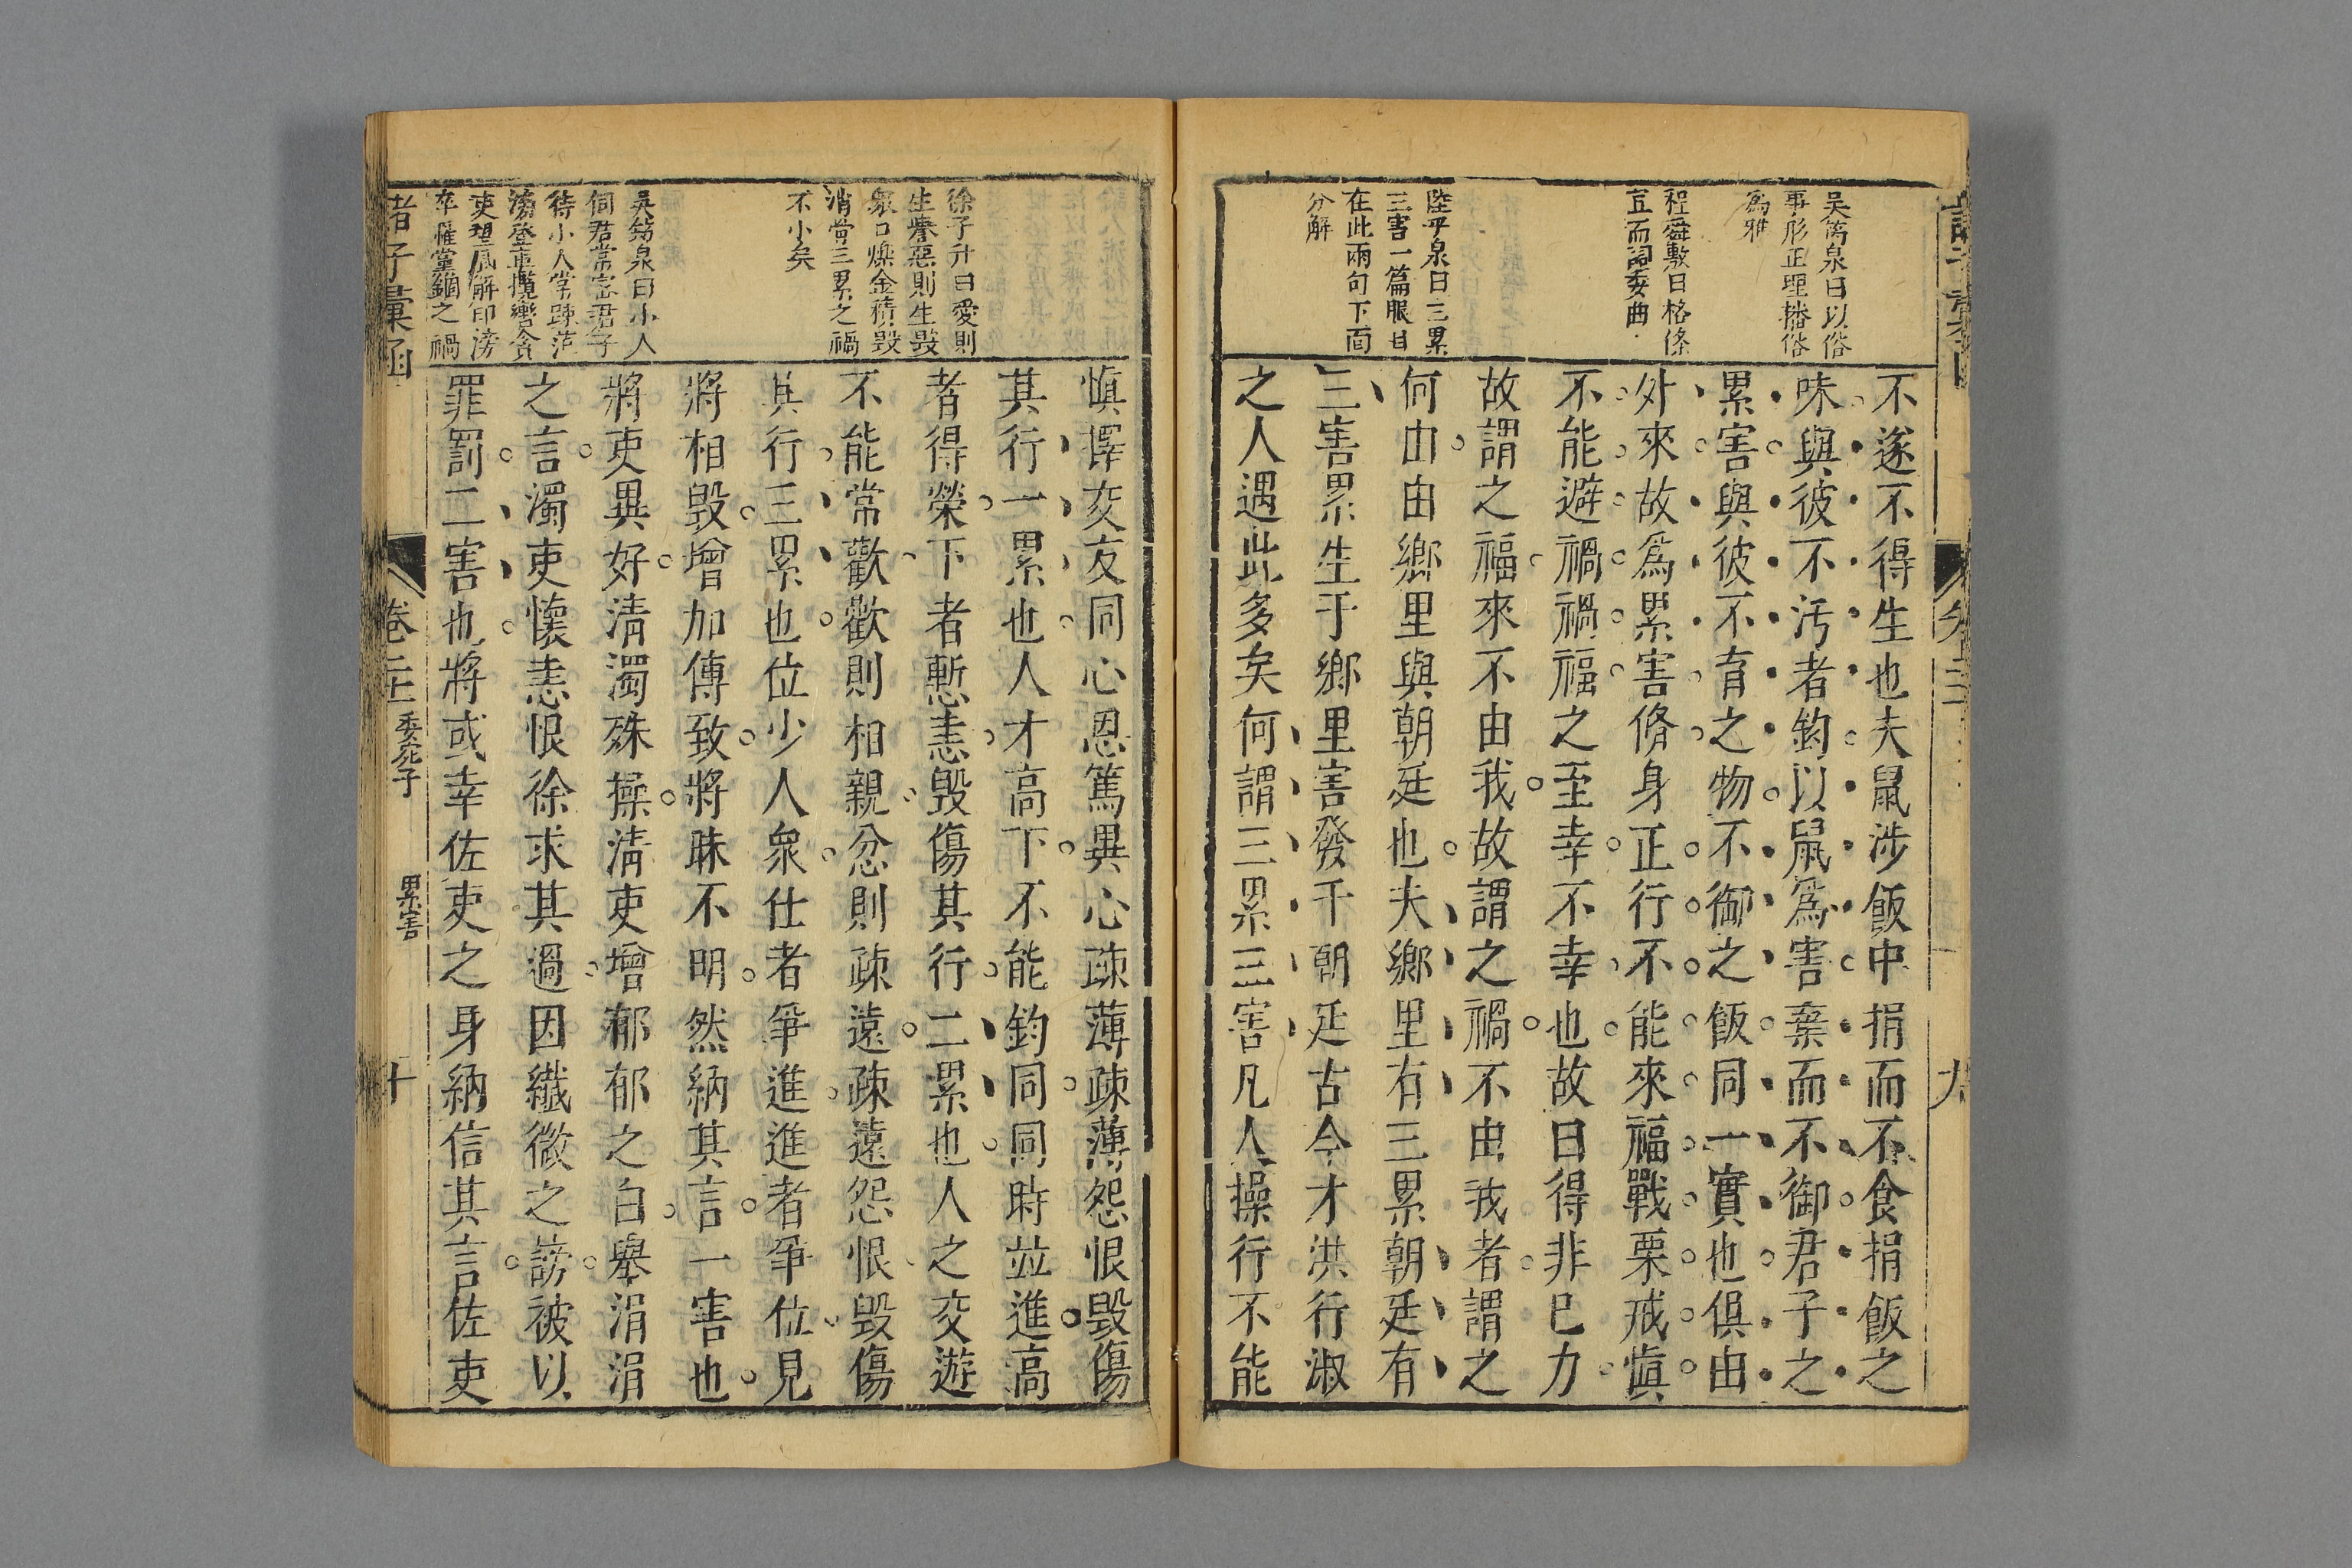 吳筠泉曰以俗
事形正理播俗
為雅
程舜敷曰格條
宜而詞委曲
陸平泉曰三累
三害一篇眼目
在此兩句下面
分解
不遂不得生也夫鼠涉飯中捐而不食捐飯之
味與彼不汚者鈞以鼠爲害棄而不御君子之
累害與彼不育之物不御之飯同一實也俱由
外來故爲累害脩身正行不能來福戰栗戒愼
不能避禍禍福之至幸不幸也故曰得非已力
故謂之福來不由我故謂之禍不由我者謂之
何由由鄉里與朝廷也夫鄉里有三累朝廷有
三害累生于鄉里害發于朝廷古今才洪行淑
之人遇此多矣何謂三累三害凡人操行不能
九
徐子升曰愛則
生譽惡則生毀
衆口爍金積毀
消骨三累之禍
不小矣
吳筠泉曰小人
伺君常密君子
待小人常疎范
滂登車攬轡貪
吏望風解印滂
卒罹黨錮之禍
愼擇友友同心恩篤異心疎薄疎薄怨恨毀傷
其行一累也人才高下不能鈞同同時並進高
者得榮下者慙恚毀傷其行二累也人之交遊
不能常歡歡則相親忿則疎遠疎遠怨恨毀傷
其行三累也位少人衆仕者爭進進者爭位見
將相毀增加傳致將昧不明然納其言一害也
將吏異好淸濁殊操淸吏增郁郁之白舉涓涓
之言濁吏懷恚恨徐求其過因纖微之謗被以
罪罰二害也將或幸佐吏之身納信其言佐吏
諸子彙函
卷二十 委宛子 累害 十